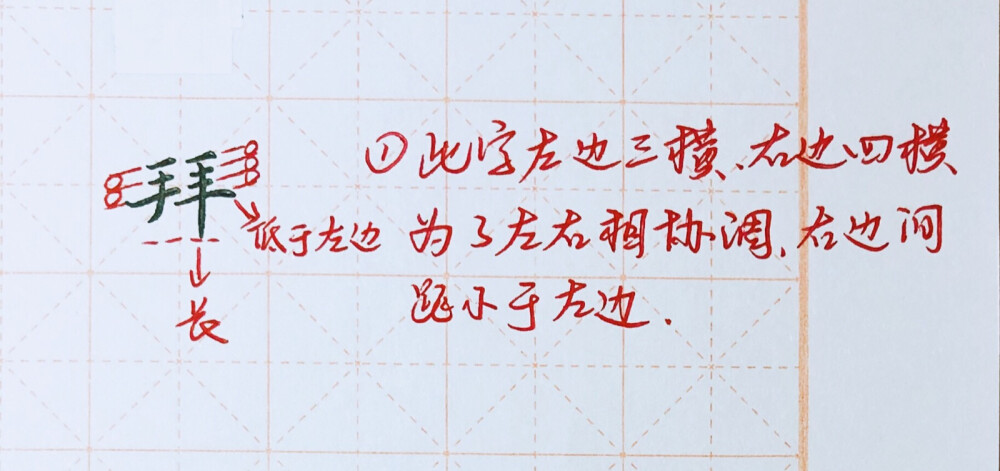 拜
低于左边
长
①此字左边三横、右边四横
为了左右相协调，右边间
距小于左边.